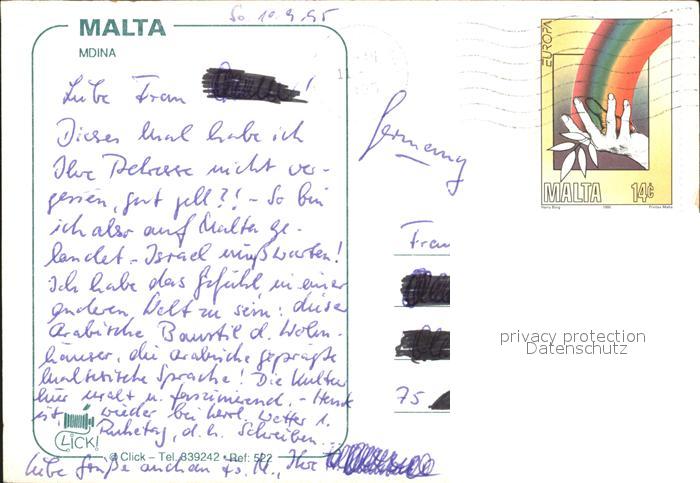 So 10.9.95
MALTA
MDINA
Liebe Frau
Dieses Mal habe ich
Ihre Adresse nicht ver-
gessen, gut gell?! - So bin
ich also auf Malta ge-
landet - Israel muß warten!
Ich habe das Gefühl in einer
anderen Welt zu sein: dieser
arabische Baustil d. Wohn-
häuser, die arabische geprägte
maltesische Sprache! Die Kultur
hier uralt u. faszinierend. - Heute
ist, wieder bei herrl. Wetter 1.
Ruhetag, d.h. Schreiben...
CLICK!
© Click – Tel. 839242 • Ref: 522
Liebe Grüße auch an Ihre
Germany
Frau
75
EUROPA
MALTA 14c
Harry Borg 1995 Printex Malta
11
privacy protection
Datenschutz